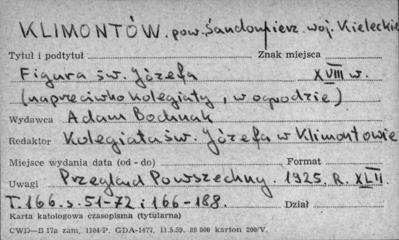 KLIMONTÓW. pow. Sandomierz. woj. Kieleckie
Tytuł i podtytuł Znak miejsca
Figura św. Józefa XVIII w.
(naprzeciwko kolegiaty, w ogrodzie)
Wydawca Adam Bochnak
Redaktor Kolegiata św. Józefa w Klimontowie
Miejsce wydania data (od - do) Format
Uwagi Przegląd Powszechny. 1925, R. XLII
T. 166. s. 51-72 i 166-188. Dział
Karta katologowa czasopisma (tytularna)
CWD—B 17a zam. 1104/P. GDA-1477. 11.5.59. 88 000 karton 200/V.